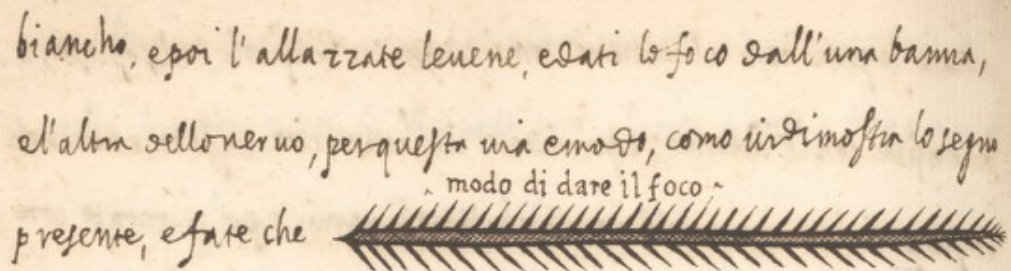 biancho, epoi l'allazzate leuene, edati lo foco dall'una banna,
el'altra delloneruo, perquesta uia emodo, como uidimostra lo segno
modo di dare il foco
presente, efate che